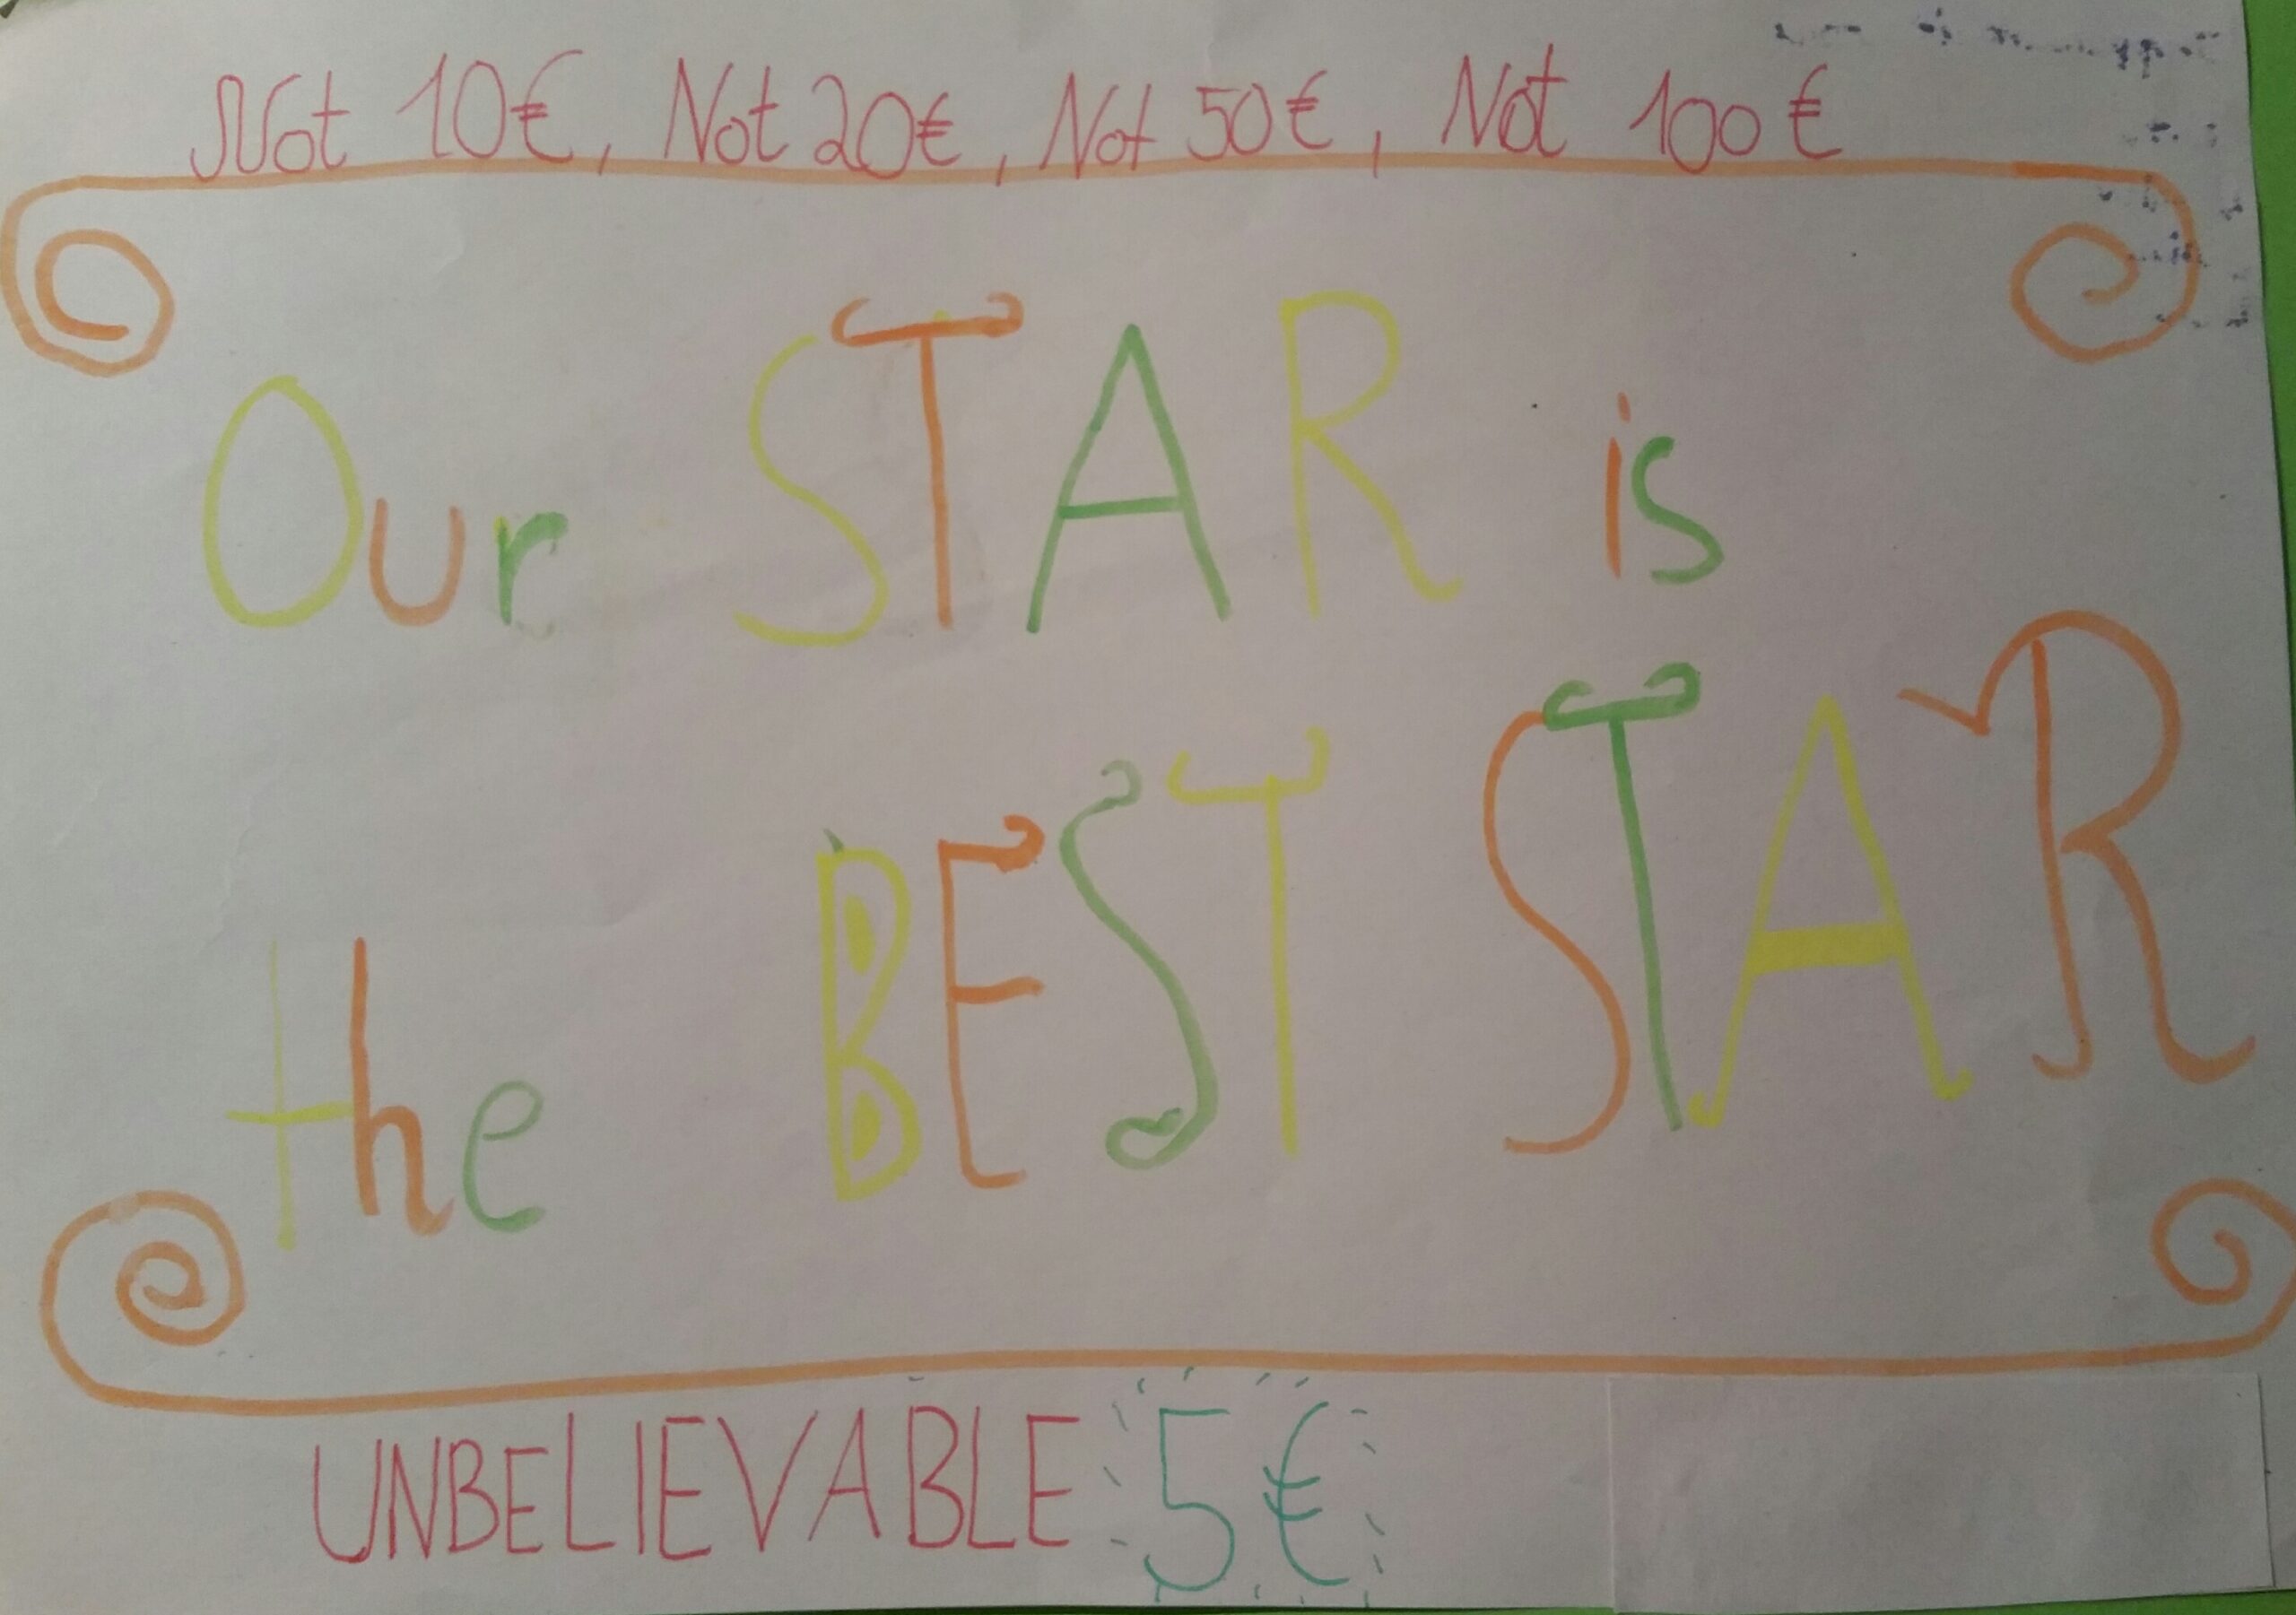 Not 10€, Not 20€, Not 50€, Not 100€
Our STAR is
the BEST STAR
UNBELIEVABLE 5€